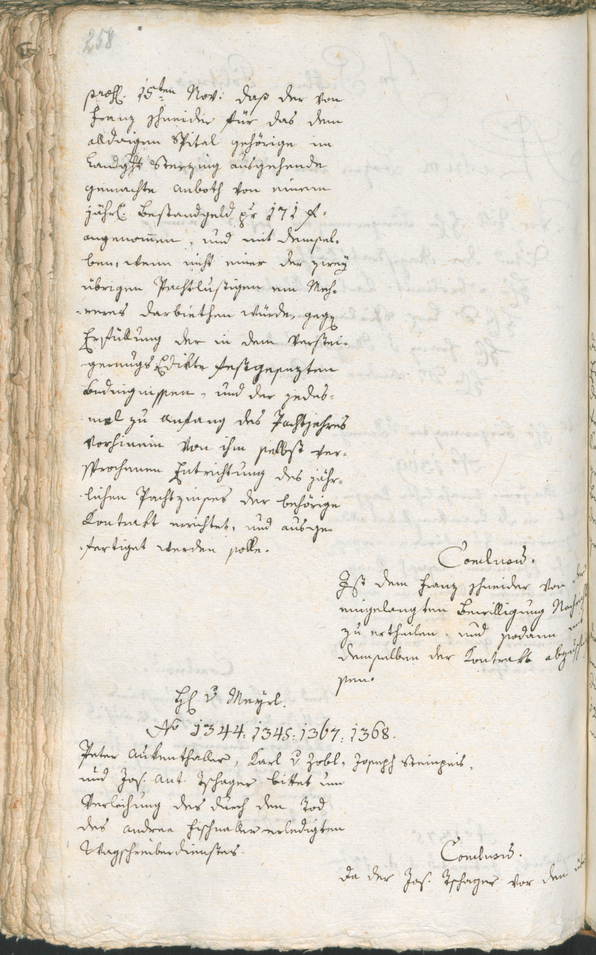 258
praes. 15ten Nov: daß der von
Franz Schneider für das dem
alldaigen Spital gehörige im
Landght Sterzing ausgehende
gemachte Anboth von einem
jährl. Bestandgeld pr 171 f.
angenommen, und mit demsel-
ben, wenn nicht einer der zwey
übrigen Pachtlustigen ein Meh-
reres darbiethen würde, gegen
Erfüllung der in dem Verstei-
gerungs Edikte festgesezten
Bedingnissen, und der jedes-
mal zu Anfang des Pachtjahres
vorhinein von ihm selbst ver-
sprochenen Entrichtung des jähr-
lichen Pachtzinses der behörige
Kontrakt errichtet, und ausge-
fertiget werden solle.
Conclusum.
Ist dem Franz Schneider von der
eingelangten Bewilligung
zu ertheilen, und sodann mit
demselben der Kontrakt abzuschlies-
sen.
H. v Meyrl.
No 1344. 1345. 1367. 1368.
Peter Aukenthaler, Karl v Zobl, Joseph Steinpeis,
und Jos. Ant. Tschager bittet um
Verleihung des durch den Tod
des Andree Fischnaller erledigten
Wagschreiberdienstes.
Conclusum.
Da der Jos. Tschager vor den